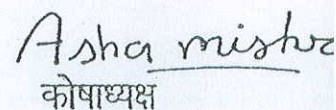 Asha mishra
कोषाध्यक्ष